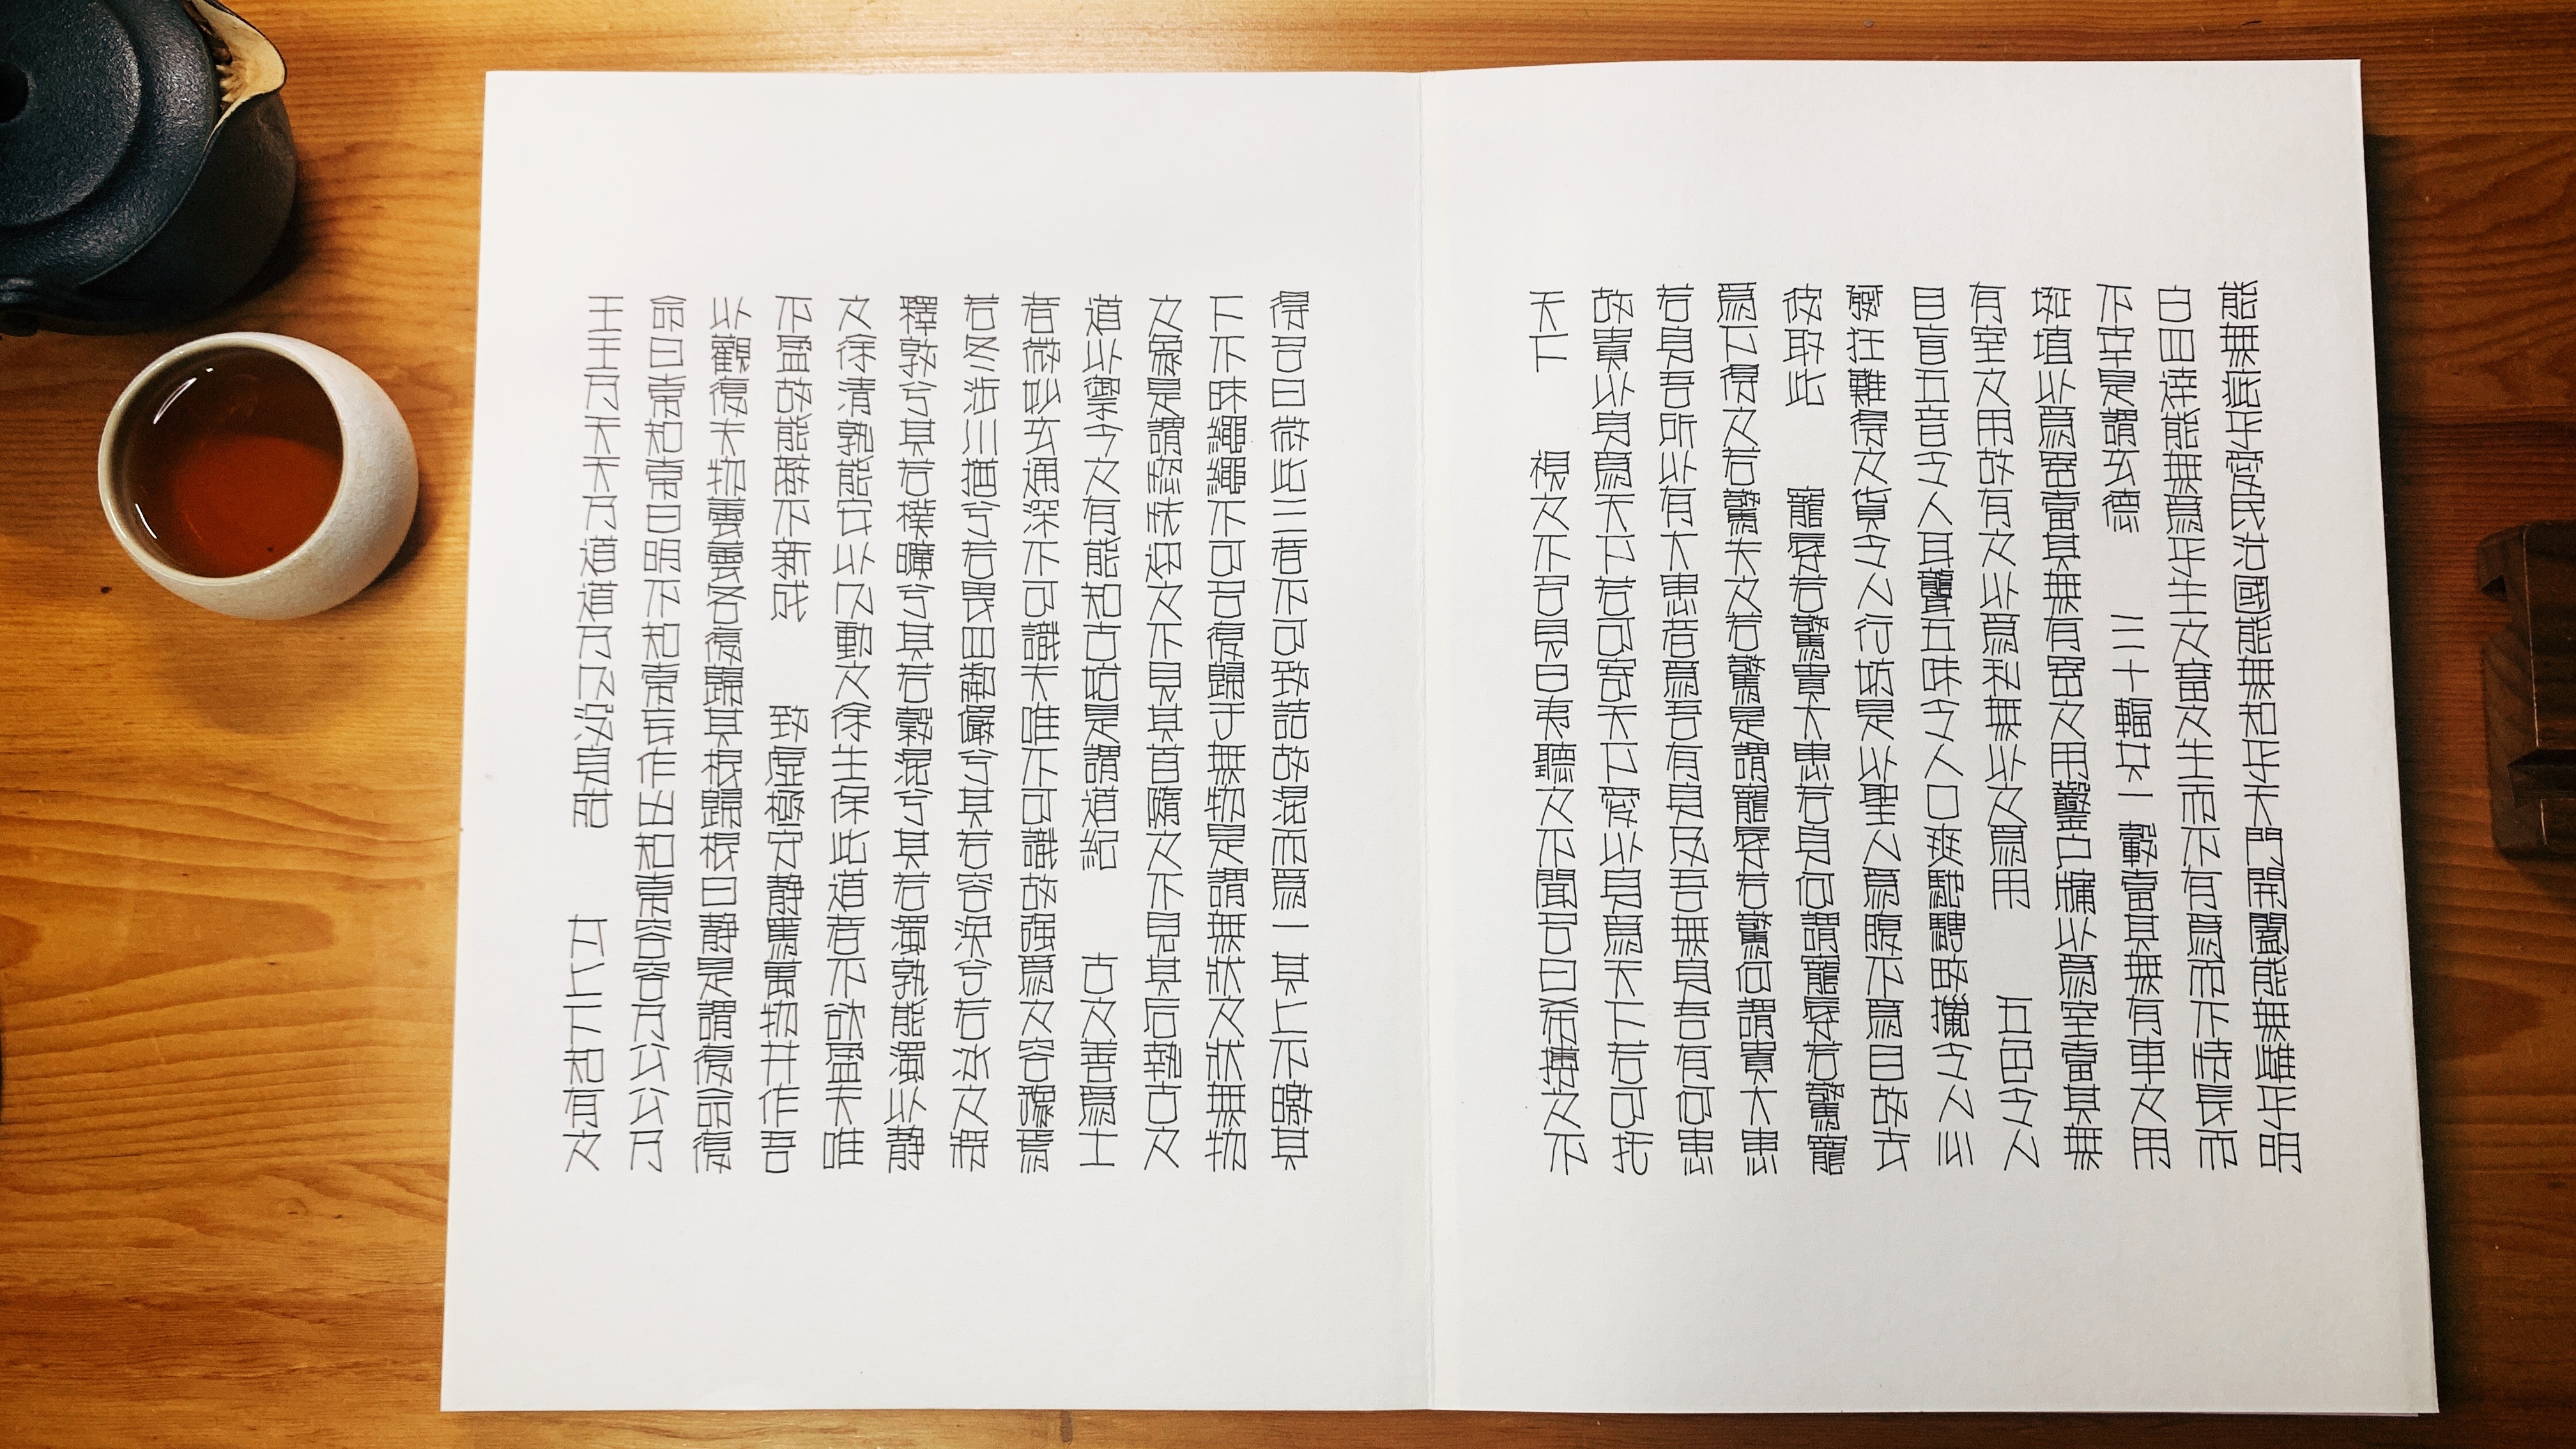 能無疵乎愛民治國能無知乎天門開闔能無雌乎明
白四達能無爲乎生之畜之生而不有爲而不恃長而
不宰是謂玄德 三十輻共一轂當其無有車之用
埏埴以爲器當其無有器之用鑿戶牖以爲室當其無
有室之用故有之以爲利無以之爲用 五色令人
目盲五音令人耳聾五味令人口爽馳騁畋獵令人心
發狂難得之貨令人行妨是以聖人爲腹不爲目故去
彼取此 寵辱若驚貴大患若身何謂寵辱若驚寵
爲下得之若驚失之若驚是謂寵辱若驚何謂貴大患
若身吾所以有大患者爲吾有身及吾無身吾有何患
故貴以身爲天下若可寄天下愛以身爲天下若可托
天下 視之不可見曰夷聽之不聞名曰希搏之不
得名曰微此三者不可致詰故混而爲一其上不皦其
下不昧繩繩不可名復歸于無物是謂無狀之狀無物
之象是謂惚恍迎之不見其首隨之不見其后執古之
道以禦今之有能知古始是謂道紀 古之善爲士
者微妙玄通深不可識夫唯不可識故强爲之容豫焉
若冬涉川猶兮若畏四鄰儼兮其若容渙兮若冰之將
釋敦兮其若樸曠兮其若穀混兮其若濁孰能濁以静
之徐清孰能安以久動之徐生保此道者不欲盈夫唯
不盈故能蔽不新成 致虛極守静篤萬物并作吾
以觀復夫物蕓蕓各復歸其根歸根曰静是謂復命復
命曰常知常曰明不知常妄作凶知常容容乃公公乃
王王乃天天乃道道乃久没身殆 太上下知有之